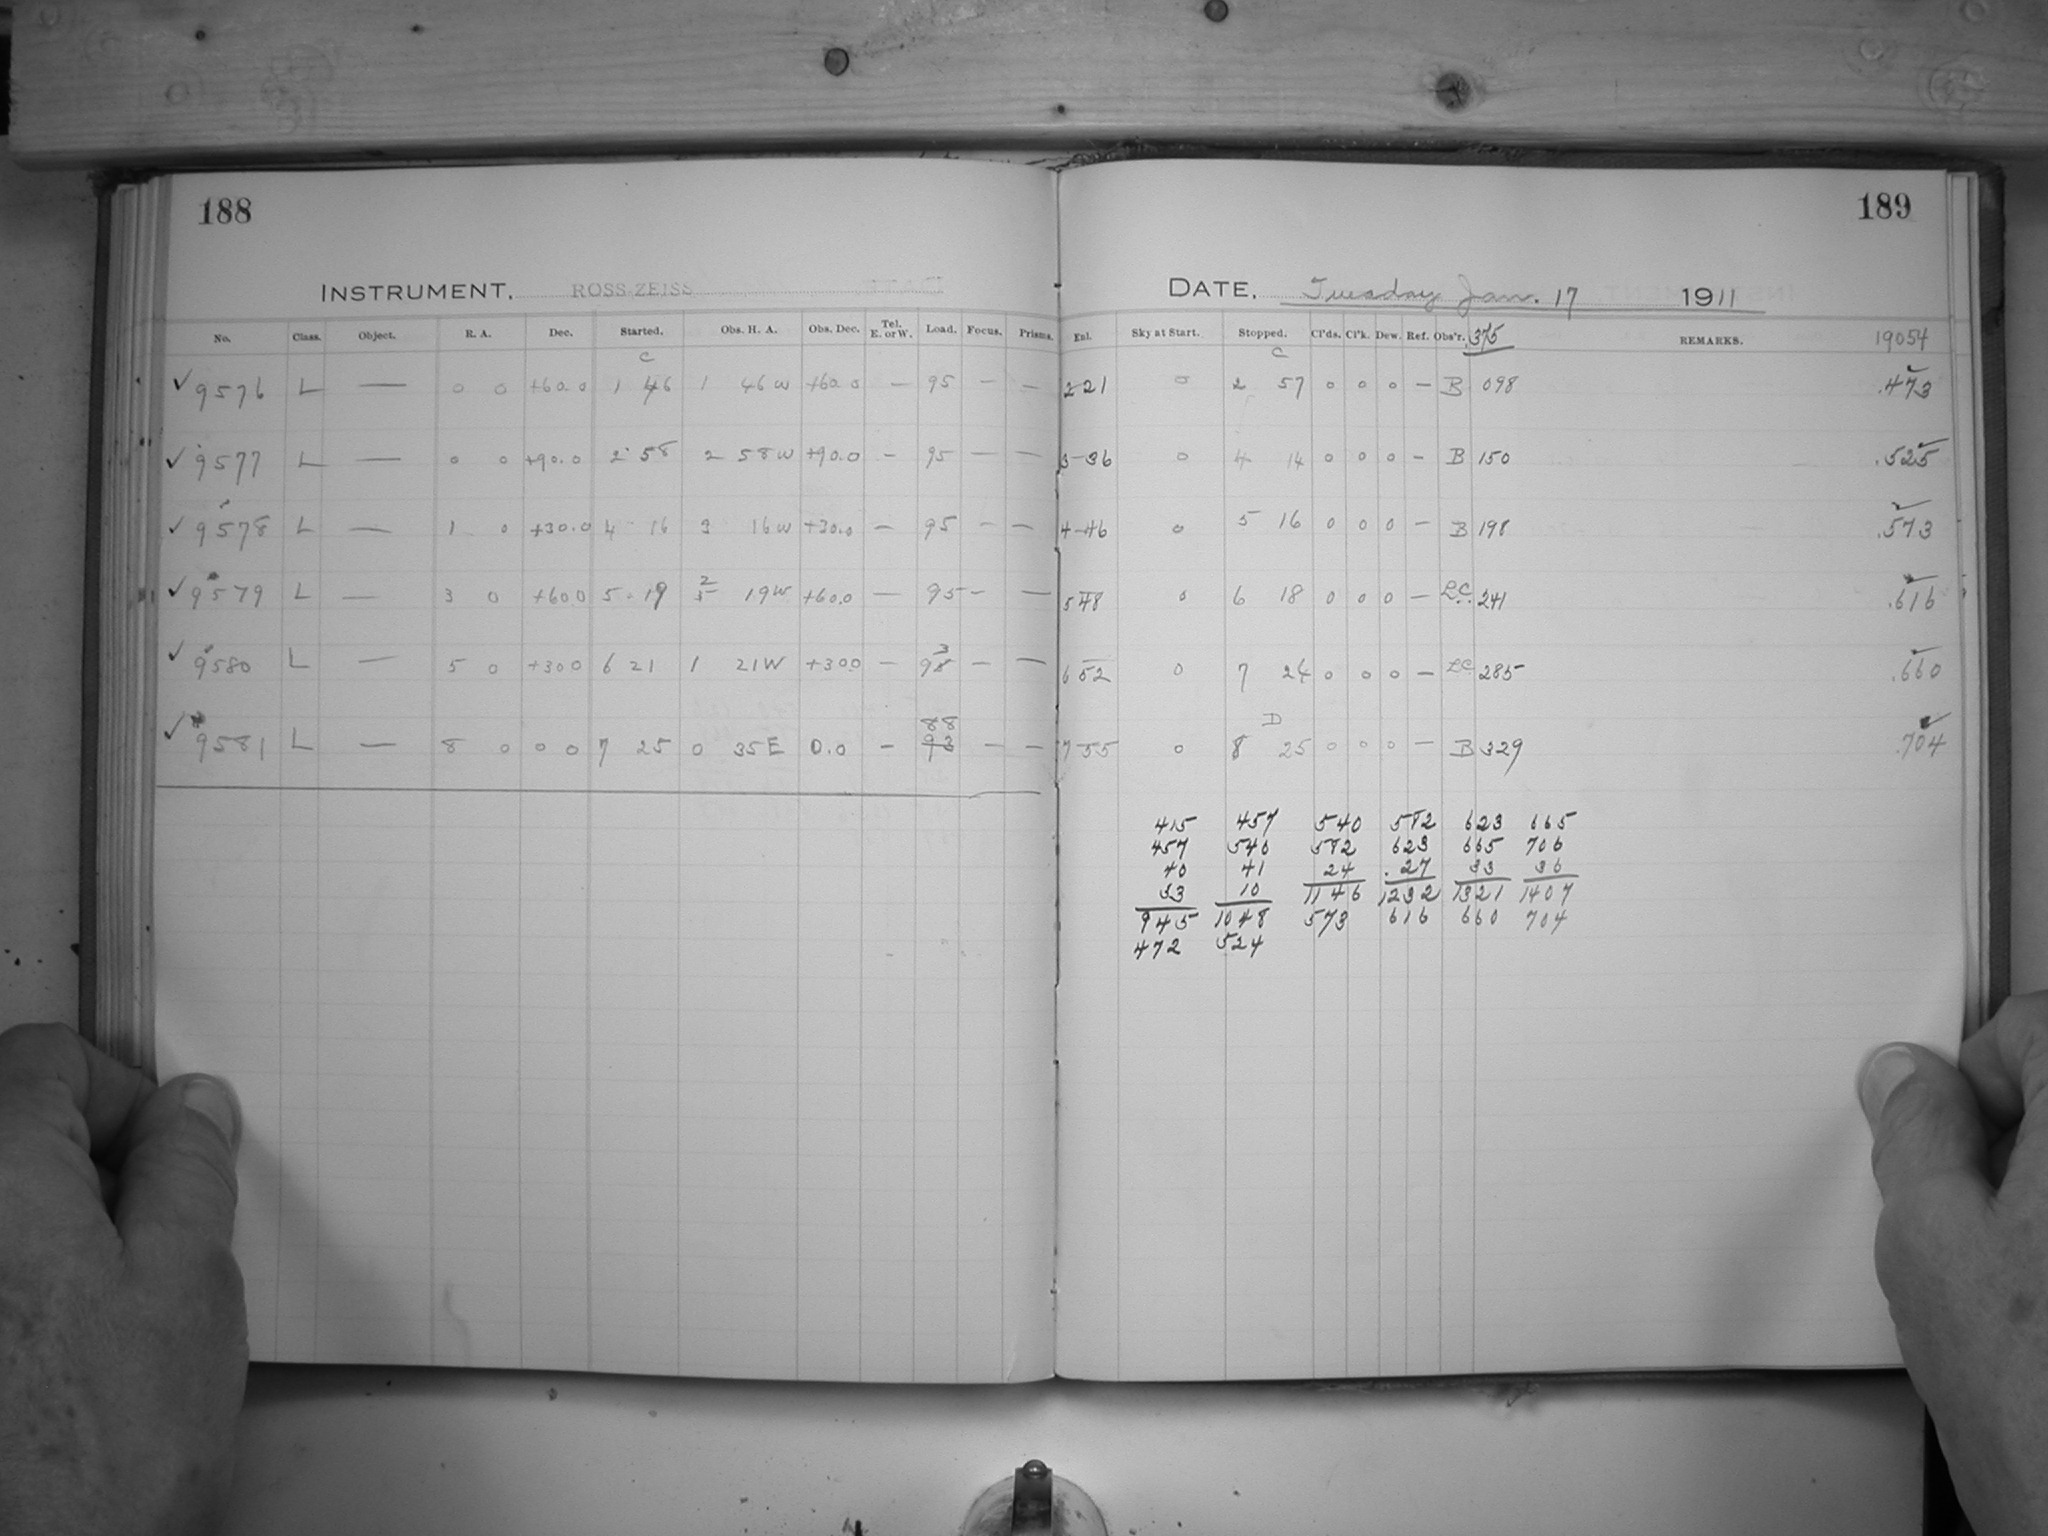 188
INSTRUMENT, ROSS-ZEISS
No. Class. Object. R. A. Dec. Started. Obs. H. A. Obs. Dec. Tel. E. or W. Load. Focus. Prisms.
C
✓ 9576 L — 0 0 +60.0 1 46 1 46 W +60.0 — 95 — —
✓ 9577 L — 0 0 +90.0 2 58 2 58 W +90.0 — 95 — —
✓ 9578 L — 1 0 +30.0 4 16 3 16 W +30.0 — 95 — —
2
✓ 9579 L — 3 0 +60.0 5 19 19 W +60.0 — 95 — —
3
✓ 9580 L — 5 0 +30.0 6 21 1 21 W +30.0 — 98 — —
88
✓ 9581 L — 8 0 0 0 7 25 0 35 E 0.0 — 93 — —
189
DATE, Tuesday Jan. 17 1911
Enl. Sky at Start. Stopped. Cl'ds. Cl'k. Dew. Ref. Obs'r. .375 REMARKS. 19054
C
2 21 0 2 57 0 0 0 — B 098 .473
3 36 0 4 14 0 0 0 — B 150 .525
4 46 0 5 16 0 0 0 — B 198 .573
5 48 0 6 18 0 0 0 — L.C. 241 .616
6 52 0 7 24 0 0 0 — LC 285 .660
D
7 55 0 8 25 0 0 0 — B 329 .704
415 457 540 582 623 665
457 540 582 623 665 706
40 41 24 27 33 36
33 10 1146 1232 1321 1407
945 1048 573 616 660 704
472 524